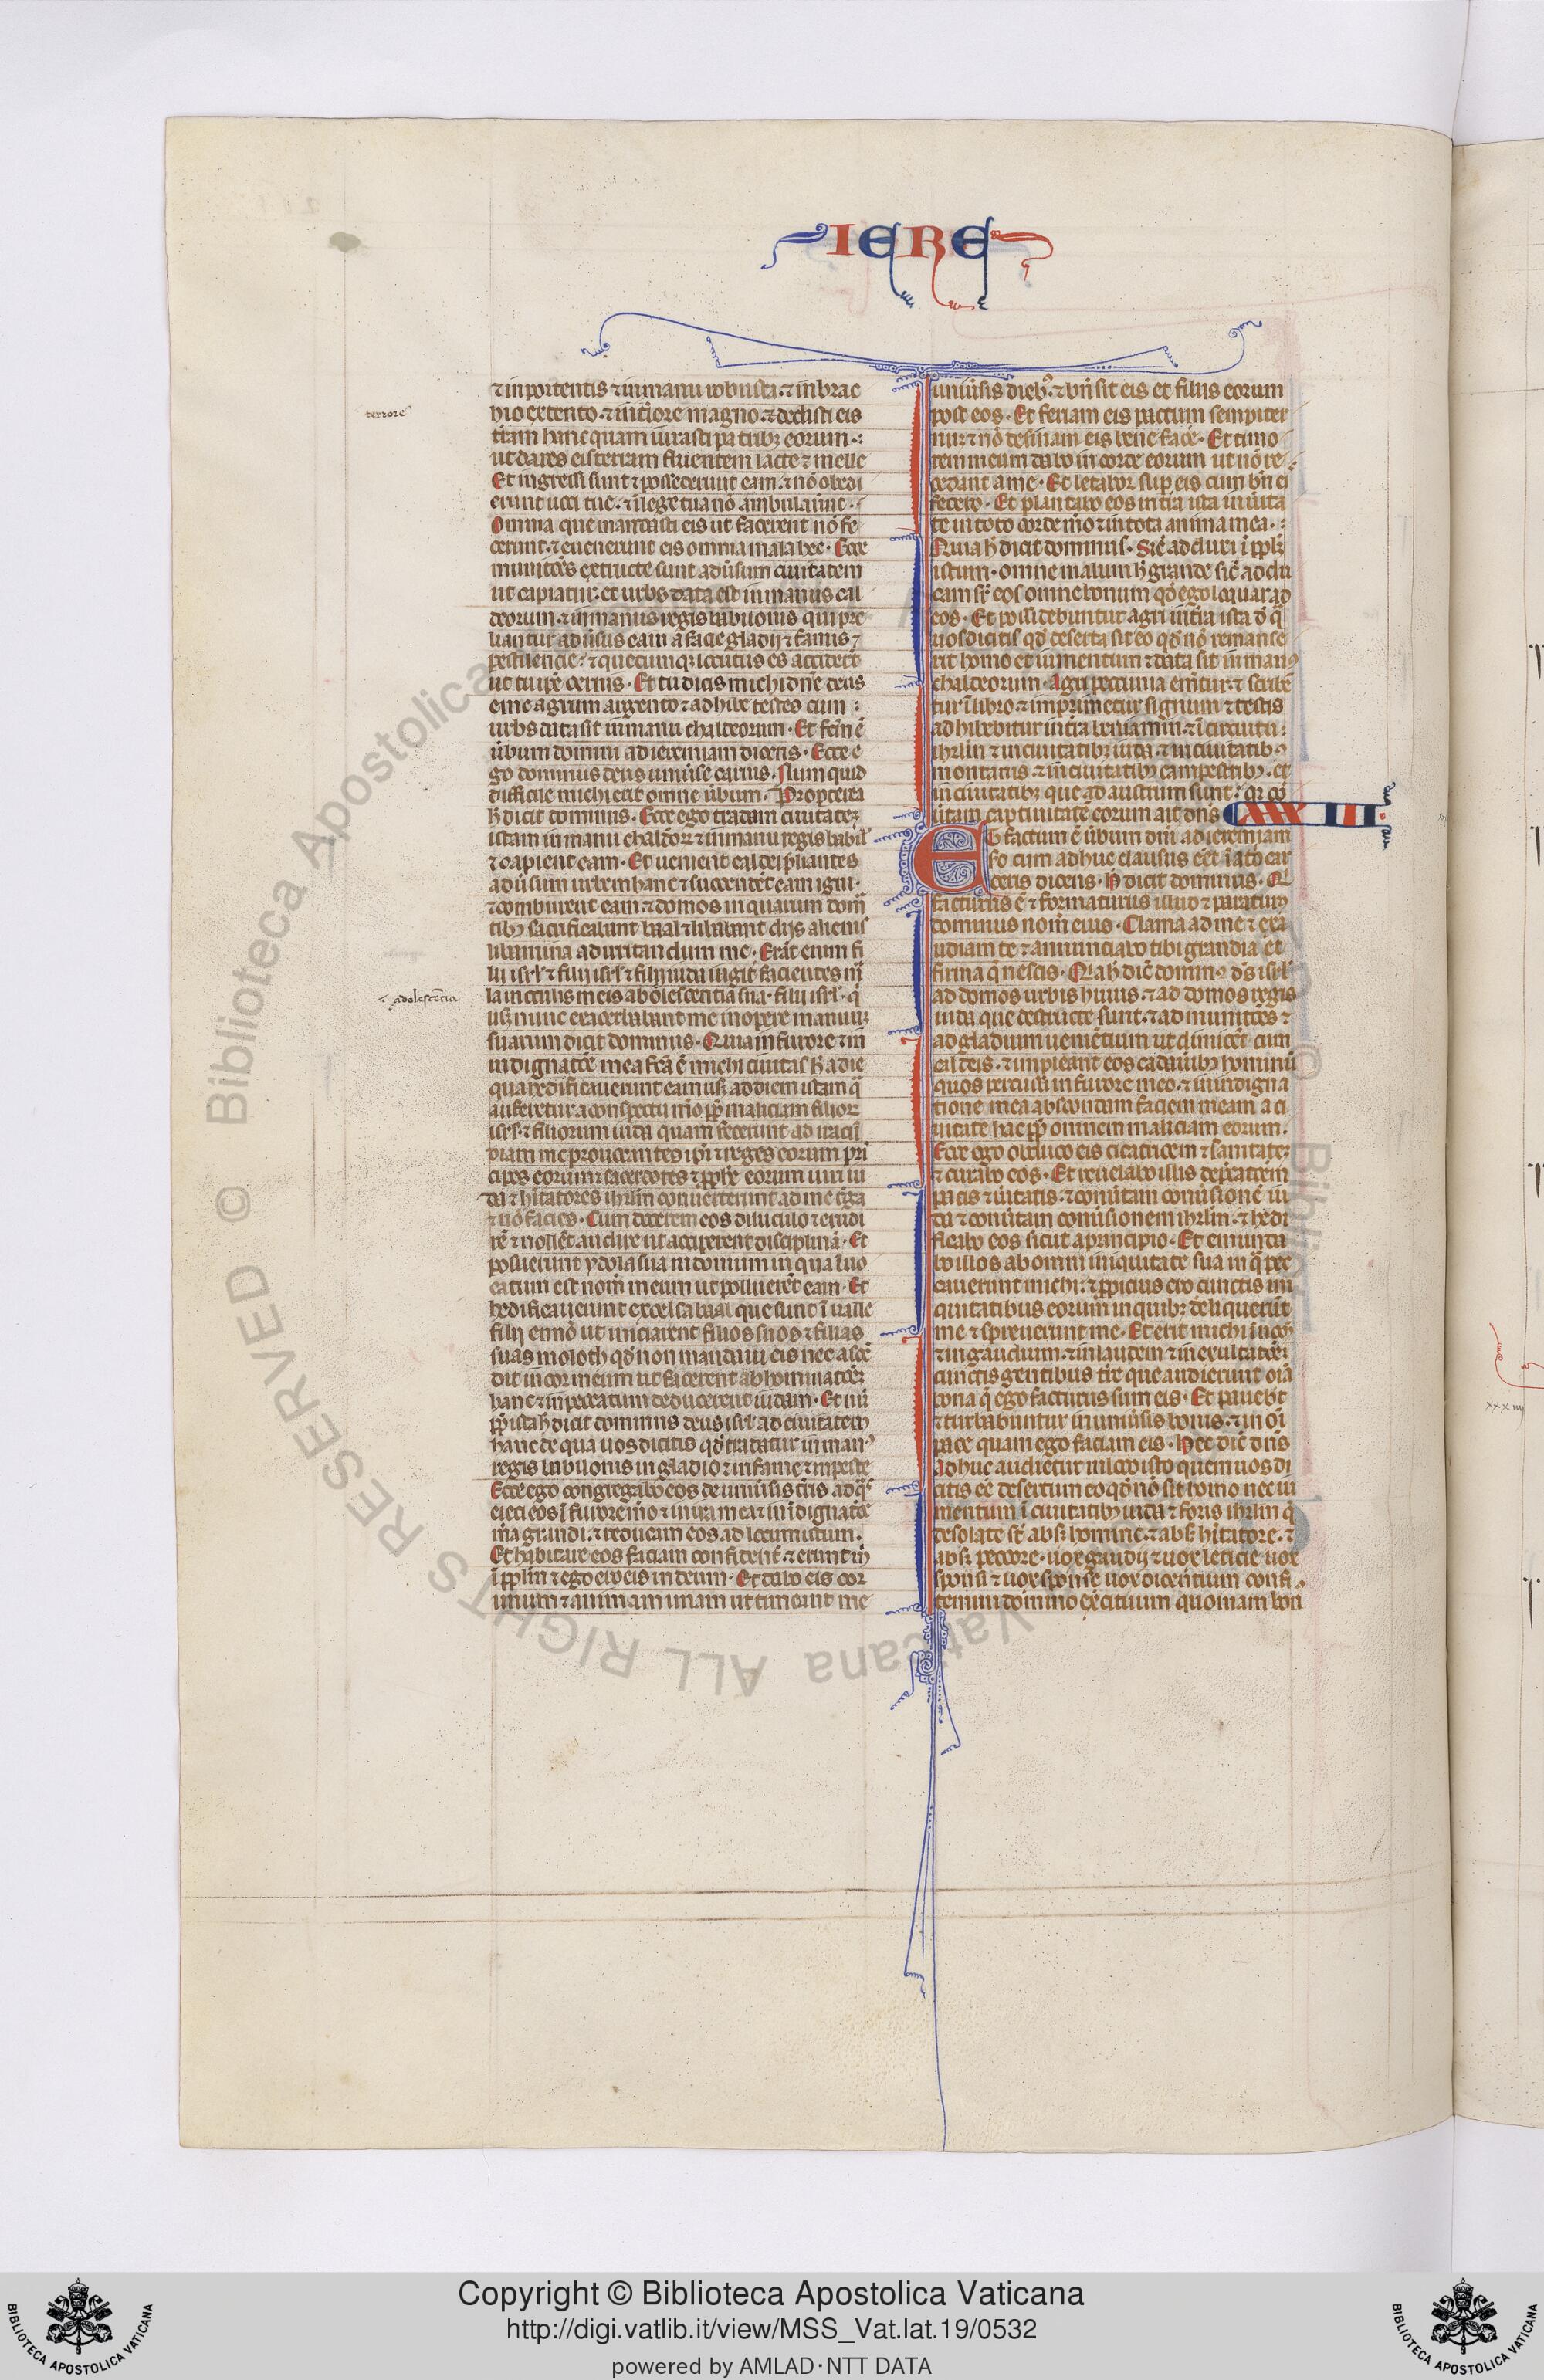 IERE
⁊ in portentis ⁊ in manu robusta. ⁊ in brac
hio extento. ⁊ in t̾rore magno. ⁊ dedisti eis
terrore
t̾ram hanc quam iurasti patribꝫ eorum.
ut dares eis terram fluentem lacte ⁊ melle
Et ingressi sunt ⁊ possederunt eam. ⁊ nō obedi
erunt uoci tue. ⁊ ī lege tua nō ambulauūt.
Omnia que mandasti eis ut facerent nō fe
cerunt. ⁊ euenerunt eis omnia mala hec. Ecce
munitōes extructe sunt adūsum ciuitatem
ut capiatur. et urbs data est in manus cal
deorum. ⁊ in manus regis babilonis qui pre
liantur adūsus eam a facie gladij ⁊ famis ⁊
pestilencie. ⁊ quecumqꝫ locutus es acciderūt
ut tu ip̄e cernis. Et tu dicis michi dn̄e deus
eme agrum argento ⁊ adhibe testes cum
urbs data sit in manu chaldeorum. Et fc̄m ē
ūbum domini ad ieremiam dicens. Ecce e
go dominus deus uniūse carnis. Num quid
difficile michi erit omne ūbum. Propterea
h̄ dicit dominus. Ecce ego tradam ciuitateꝫ
istam in manu chaldeoꝝ ⁊ in manu regis babil̾
⁊ capient eam. Et uenient caldei p̄liantes
adūsum urbem hanc ⁊ succendēt eam igni.
⁊ comburent eam. ⁊ domos in quarum dom̄
tibꝫ sacrificabant baal ⁊ libabant dijs alienis
libamina ad irritandum me. Erāt enim fi
lij isrl̾ ⁊ filij iuda iugit̾ facientes m̄
la in oculis meis ab adolescentia sua. filij isrl̾. q̄
⁊ adolescētia
usqꝫ nunc exacerbabant me in opere manuuꝫ
suarum dicit dominus. Quia in furore ⁊ in
indignatōe mea fc̄a ē michi ciuitas h̄ a die
qua edificauerunt eam usqꝫ ad diem istam q̄
auferetur a conspectu m̄o pp̄ maliciam filioꝝ
isrl̾. ⁊ filiorum iuda quam fecerunt ad iracū
diam me prouocantes ip̄i ⁊ reges eorum pri
cipes eorum ⁊ sacerdotes ⁊ pphē eorum uiri iu
da ⁊ hītatores ihrlm̄ conuerterunt ad me t̾ga
⁊ nō facies. Cum docerem eos diluculo ⁊ erudi
rē ⁊ nollēt audire ut acciperent disciplinā. Et
posuerunt ydola sua in domum in qua īuo
catum est nom̄ meum ut polluerēt eam. Et
hedificauerunt excelsa baal que sunt ī ualle
filij ennō ut iniciarent filios suos ⁊ filias
suas moloth qd̄ non mandaui eis nec ascē
dit in cor meum ut facerent abhominatōeꝫ
hanc ⁊ in peccatum deducerent iudam. Et nū
pp̄ ista h̄ dicit dominus deus isrl̾ ad ciuitatem
hanc de qua uos dicitis qd̄ tradatur in man9
regis babilonis in gladio ⁊ in fame ⁊ in peste
Ecce ego congregabo eos de uniūsis t̾ris ad q̄s
eieci eos ī furore m̄o ⁊ in ira mea ⁊ in īdignatōe
mā grandi. ⁊ reducam eos ad locum istum.
Et habitare eos faciam confident̾. ⁊ erunt m̄
ī pplm̄ ⁊ ego ero eis in deum. Et dabo eis cor
unum ⁊ animam unam ut timeant me
uniūsis diebꝫ. ⁊ bn̄ sit eis et filiis eorum
post eos. Et feriam eis pactum sempiter
nuꝫ ⁊ nō desinam eis bene facē. Et timo
rem meum dabo in corde eorum ut nō re
cedant a me. Et letabor sup̄ eis cum bn̄ ei
fecero. Et plantabo eos in t̾ra ista in ūita
te in toto corde m̄o ⁊ in tota anima mea.
Quia h̄ dicit dominus. Sic̄ adduxi ī pplm̄
istum. omne malum h̄ grande sic̄ addu
cam sr̄ eos omne bonum qd̄ ego loquar ad
eos. Et possidebuntur agri in t̾ra ista d̄ q̄
uos dicitis qd̄ deserta sit eo qd̄ nō remanse
rit homo et iumentum ⁊ data sit in man9
chaldeorum. Agri peccunia emētur. ⁊ scribē
tur ī libro ⁊ imprimetur signum ⁊ testis
adhibebitur in t̾ra beniamin. ⁊ ī circuitu
ihrlm̄ ⁊ in ciuitatibꝫ iuda. ⁊ in ciuitatibꝫ
montanis ⁊ in ciuitatibꝫ campestribꝫ. et
in ciuitatibꝫ que ad austrum sunt. qꝛ cō
ūtam captiuitatē eorum ait dn̄s
XXXIII
Et factum ē ūbum dn̄i ad ieremiam
sc̄do cum adhuc clausus eēt ī atō car
ceris dicens. h̄ dicit dominus. Q̄
facturus ē ⁊ formaturus illud ⁊ paraturus
dominus nom̄ eius. Clama ad me ⁊ exa
udiam te ⁊ annunciabo tibi grandia et
firma q̄ nescis. Q̄a h̄ dic̄ domin9 ds̄ isrl̾
ad domos urbis huius. ⁊ ad domos regis
iuda que destructe sunt. ⁊ ad munitōes ⁊
ad gladium ueniētium ut dimicēt cum
caldeis. ⁊ impleant eos cadaūibꝫ hominū
quos percussi in furore meo. ⁊ in indigna
tione mea abscondam faciem meam a ci
uitate hac pp̄ omnem maliciam eorum.
Ecce ego obduco eis cicatricem ⁊ sanitateꝫ
⁊ curabo eos. Et reuelabo illis dep̄catōem
pacis ⁊ ūitatis. ⁊ conūtam conūsionē iu
da ⁊ conūtam conūsionem ihrlm̄. ⁊ hedi
ficabo eos sicut a principio. Et emunda
bo illos ab omni iniquitate sua in q̄ pec
cauerunt michi. ⁊ ppicius ero cunctis ini
quitatibus eorum in quibꝫ deliquerūt
me ⁊ spreuerunt me. Et erit michi ī nom̄
⁊ in gaudium. ⁊ in laudem ⁊ in exultatōeꝫ
cunctis gentibus t̾re que audierunt oīa
bona q̄ ego facturus sum eis. Et pauebt̄
⁊ turbabuntur in uniūsis bonis. ⁊ in oī
pace quam ego faciam eis. Hec dic̄ dn̄s
Adhuc audietur in loco isto quem uos di
citis eē desertum eo qd̄ nō sit homo nec iu
mentum ī ciuitatibꝫ iuda ⁊ foris ihrlm̄ q̄
desolate st̄ absqꝫ homine. ⁊ absqꝫ hītatore. ⁊
absqꝫ peccore. uox gaudij ⁊ uox leticie uox
sponsi ⁊ uox sponse uox dicentium confi
temini domino exercituum quoniam bon
xxxiiij
© Biblioteca Apostolica Vaticana ALL RIGHTS RESERVED
Copyright © Biblioteca Apostolica Vaticana
http://digi.vatlib.it/view/MSS_Vat.lat.19/0532
powered by AMLAD·NTT DATA
BIBLIOTECA APOSTOLICA VATICANA
BIBLIOTECA APOSTOLICA VATICANA